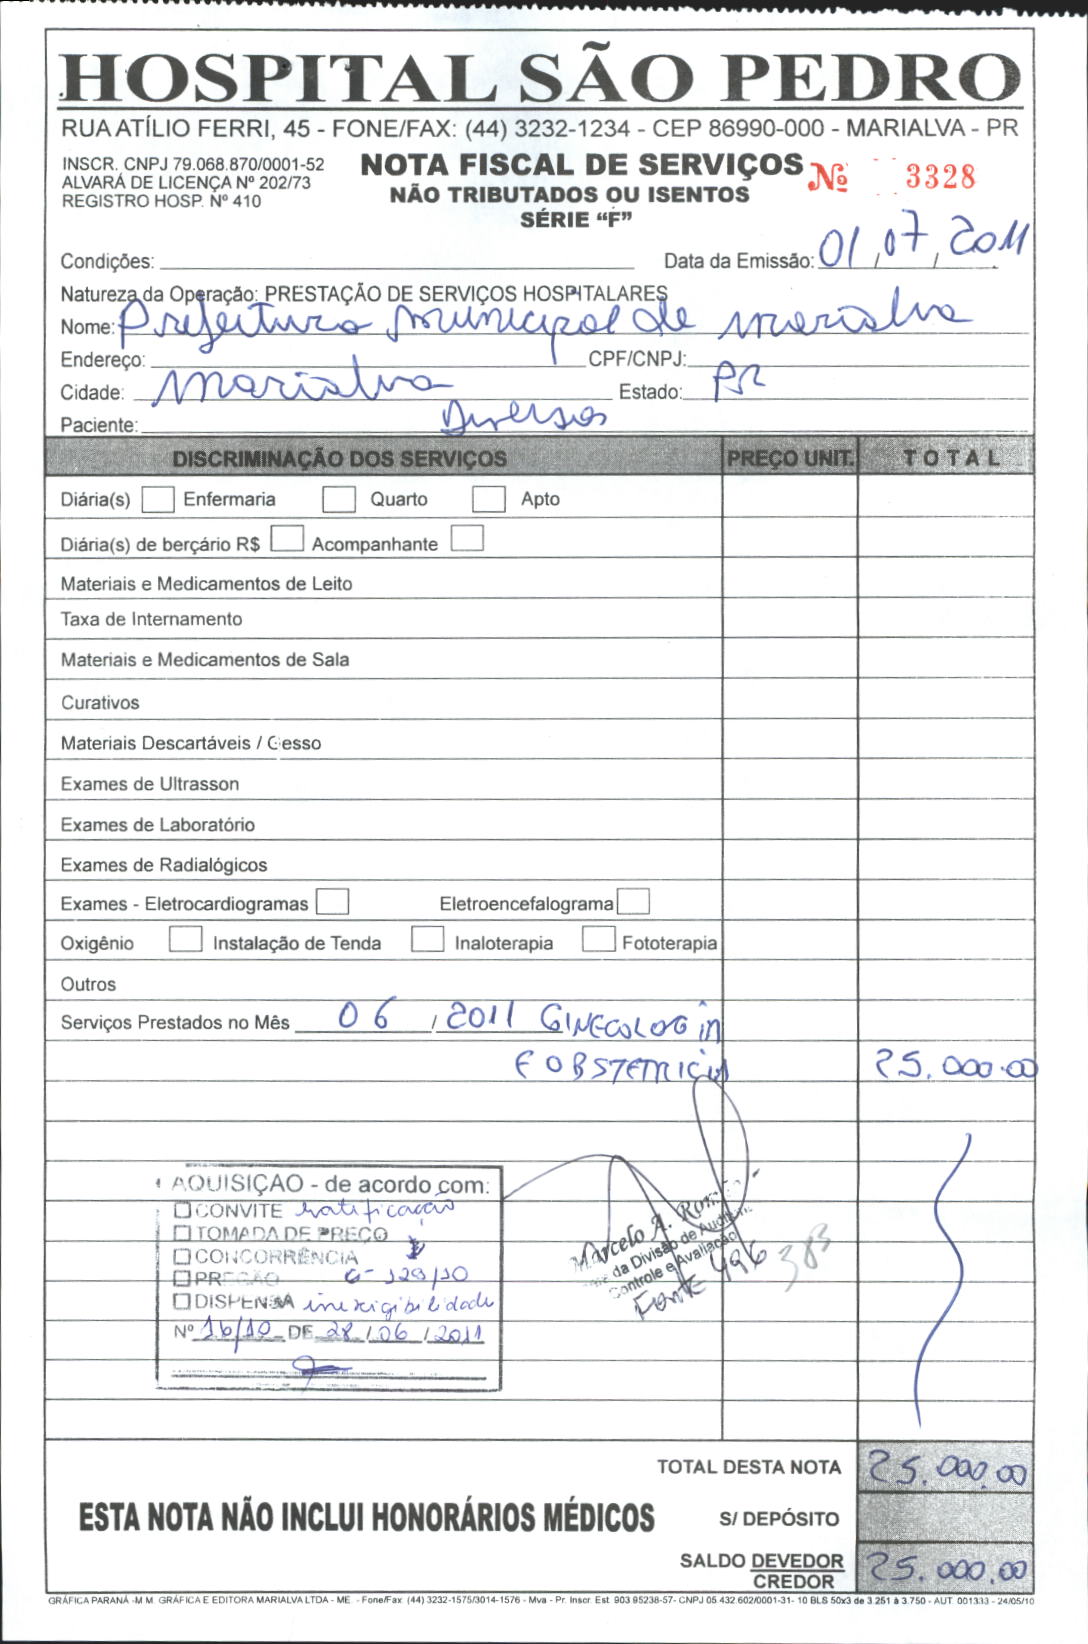 HOSPITAL SÃO PEDRO
RUA ATÍLIO FERRI, 45 - FONE/FAX: (44) 3232-1234 - CEP 86990-000 - MARIALVA - PR
INSCR. CNPJ 79.068.870/0001-52
ALVARÁ DE LICENÇA Nº 202/73
REGISTRO HOSP. Nº 410
NOTA FISCAL DE SERVIÇOS
NÃO TRIBUTADOS OU ISENTOS
SÉRIE “F”
Nº 3328
Condições: Data da Emissão: 01/07/2011
Natureza da Operação: PRESTAÇÃO DE SERVIÇOS HOSPITALARES
Nome: Prefeitura Municipal de Marialva
Endereço: CPF/CNPJ:
Cidade: Marialva Estado: PR
Paciente: Diversos
DISCRIMINAÇÃO DOS SERVIÇOS PREÇO UNIT. TOTAL
Diária(s) Enfermaria Quarto Apto
Diária(s) de berçário R$ Acompanhante
Materiais e Medicamentos de Leito
Taxa de Internamento
Materiais e Medicamentos de Sala
Curativos
Materiais Descartáveis / Gesso
Exames de Ultrasson
Exames de Laboratório
Exames de Radialógicos
Exames - Eletrocardiogramas Eletroencefalograma
Oxigênio Instalação de Tenda Inaloterapia Fototerapia
Outros
Serviços Prestados no Mês 06 / 2011 GINECOLOGIA
E OBSTETRICIA 25.000.00
AQUISIÇÃO - de acordo com:
CONVITE Ratificação
TOMADA DE PREÇO
CONCORRÊNCIA
PREGÃO 129/10
DISPENSA inexigibilidade
Nº 16/10 DE 28/06/2011
Marcelo A.
da Divisão de
Controle e Avaliação
Fonte 496
383
TOTAL DESTA NOTA 25.000,00
ESTA NOTA NÃO INCLUI HONORÁRIOS MÉDICOS
S/ DEPÓSITO
SALDO DEVEDOR 25.000.00
CREDOR
GRÁFICA PARANÁ - M.M. GRÁFICA E EDITORA MARIALVA LTDA - ME. - Fone/Fax: (44) 3232-1575/3014-1576 - Mva - Pr. Inscr. Est. 903.95238-57- CNPJ 05.432.602/0001-31- 10 BLS 50x3 de 3.251 à 3.750 - AUT. 001333 - 24/05/10